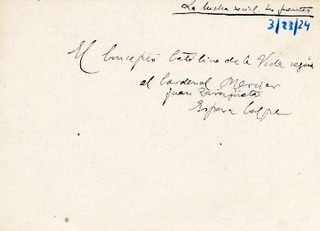 La lucha social. Sus fuentes
3/23/24
El Concepto Católico de la Vida según
el Cardenal Mercier
Juan Zaragüeta
Espasa Calpe